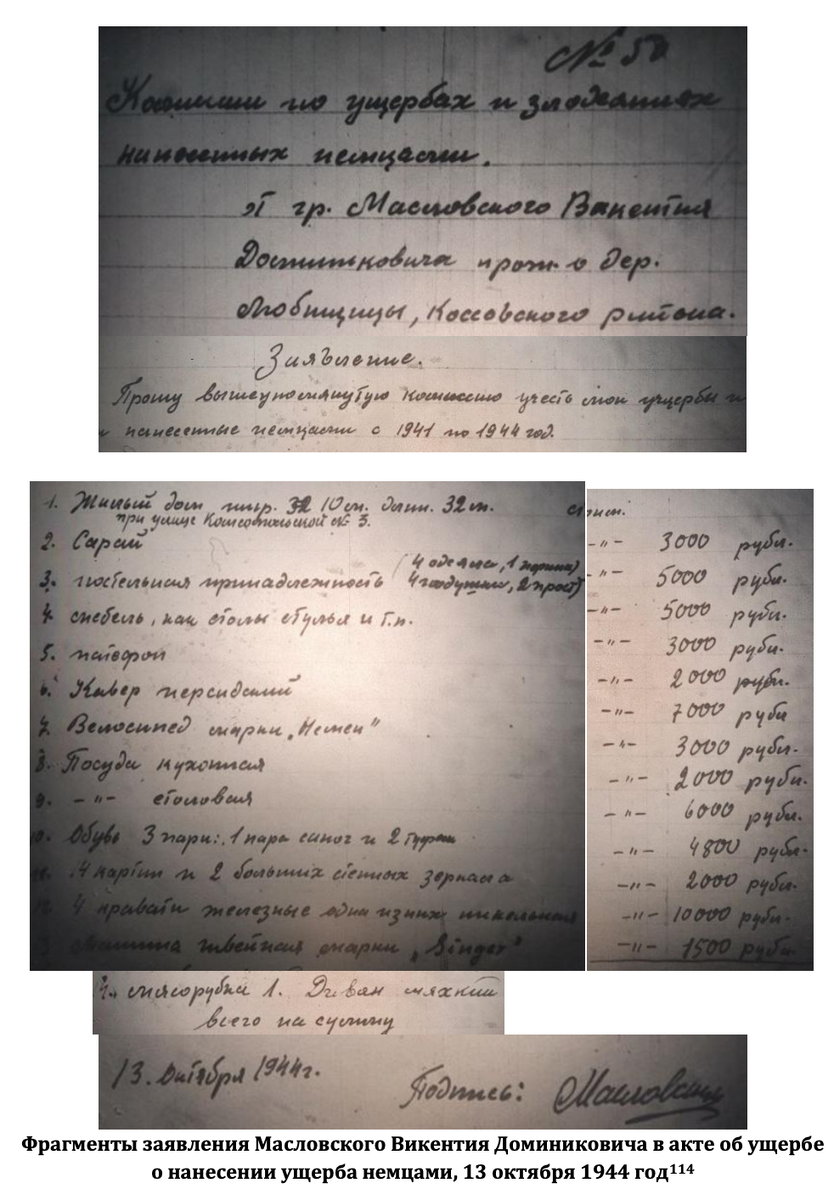 № 50
Комисии по ущербах и злодеяниях
нанесенных немцами.
От гр. Масловского Викентия
Доминиковича прож. в дер.
Любищицы, Коссовского района.
Заявление.
Прошу вышеупомянутую комиссию учесть мои ущербы и
нанесенные немцами с 1941 по 1944 год.
1. Жилый дом шир. 10 м. длин. 32 м.
при улице Комсомольской № 3.
2. Сарай
3. постельная принадлежность (4 одеяла, 1 перина,
4 подушки, 2 прост)
4. мебель, как столы стулья и т.п.
5. патефон
6. Кавер персидский
7. Велосипед марки „Немен"
8. Посуда кухонная
9. -"- столовая
10. Обувь 3 пари: 1 пара сапог и 2 туфли
11. 14 картин и 2 больших стенных зеркала
12. 4 кравати железные одна из них никельная
13. машина швейная марки „Singer"
-"- 3000 рубл.
-"- 5000 рубл.
-"- 5000 рубл.
-"- 3000 рубл.
-"- 2000 рубл.
-"- 7000 рубл
-"- 3000 рубл.
-"- 2000 рубл.
-"- 6000 рубл.
-"- 4800 рубл.
-"- 2000 рубл.
-"- 10000 рубл.
-"- 1500 рубл.
14. мясорубка 1. Диван мяхкий
всего на сумму
13. Октября 1944г. Подпись: Масловский
Фрагменты заявления Масловского Викентия Доминиковича в акте об ущербе
о нанесении ущерба немцами, 13 октября 1944 год¹¹⁴